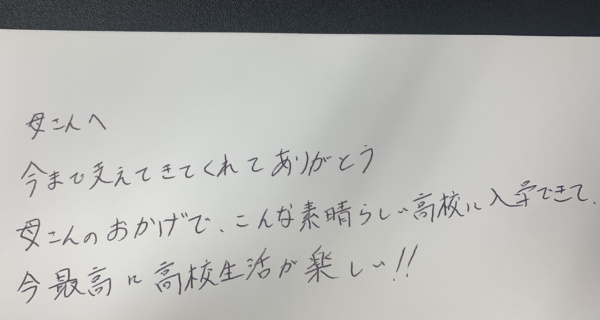 母さんへ
今まで支えてきてくれてありがとう
母さんのおかげで、こんな素晴らしい高校に入学できて、
今最高に高校生活が楽しい!!